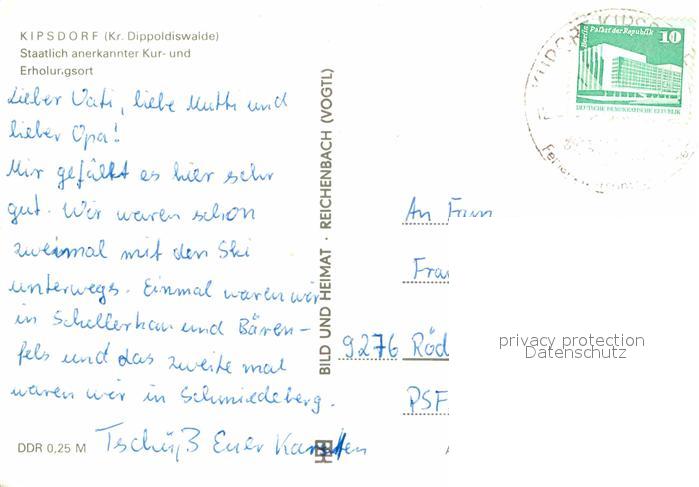 KIPSDORF (Kr. Dippoldiswalde)
Staatlich anerkannter Kur- und
Erholungsort
Lieber Vati, liebe Mutti und
lieber Opa!
Mir gefällt es hier sehr
gut. Wir waren schon
zweimal mit den Ski
unterwegs. Einmal waren wir
in Schellerhau und Bären-
fels und das zweite mal
waren wir in Schmiedeberg.
Tschüß Euer Karsten
DDR 0,25 M
BILD UND HEIMAT · REICHENBACH (VOGTL)
Berlin Palast der Republik 10
DEUTSCHE DEMOKRATISCHE REPUBLIK
KURORT KIPSDORF
An Fam
Frau
9276 Röd
PSF
privacy protection
Datenschutz